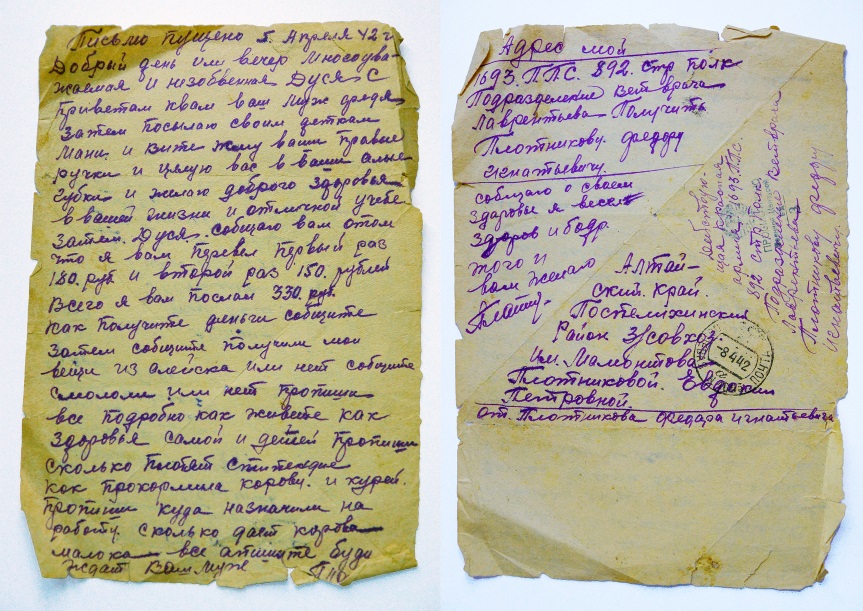 Письмо пущено 5. Апреля 42 г
Добрый день или вечер Многоува-
жаемая и незобвенная Дуся. С
приветам квам ваш муж федя
Затем посылаю своим деткам
Мани. и вите жму ваши правые
ручки и цылую вас в ваши алые
губки и желаю доброго здоровья
в вашей жизни и отличной учебе
Затем. Дуся. собщаю вам отом
что я вам перевел первый раз
180. руб и второй раз 150. рублей
Всего я вам послал 330. руб.
как получите деньги собщите
Затем собщите получили мои
вещи из алейска или нет собщите
смололи или нет пропиши
все подробно как живете как
здоровья самой и детей пропиши
сколько платят
как прокормила корову. и курей.
пропиши куда назначили на
работу. сколько дает корова
малока все апишите буди
ждат Ваш муж
Адрес мой
1693. П.П.С. 892. стр полк
Подразделение вет врача
Лаврентьева Получить
Плотникову. федору
игнатьевичу.
собщаю о своем
здоровье я весел
Здоров и бодр.
того и
вам желаю
Алтай-
ский. край.
Поспелихинский
Район З/совхоз
им. Мамонтова
Плотниковой. Евдокии
Петровной.
от Плотникова федара игнатьевича
Действую-
щая красная
армия 1693 П.П.С
892 стр полк
Подразделение ветврача
Лаврентьева
Плотникову федору
игнатьевичу.
-8 4 42